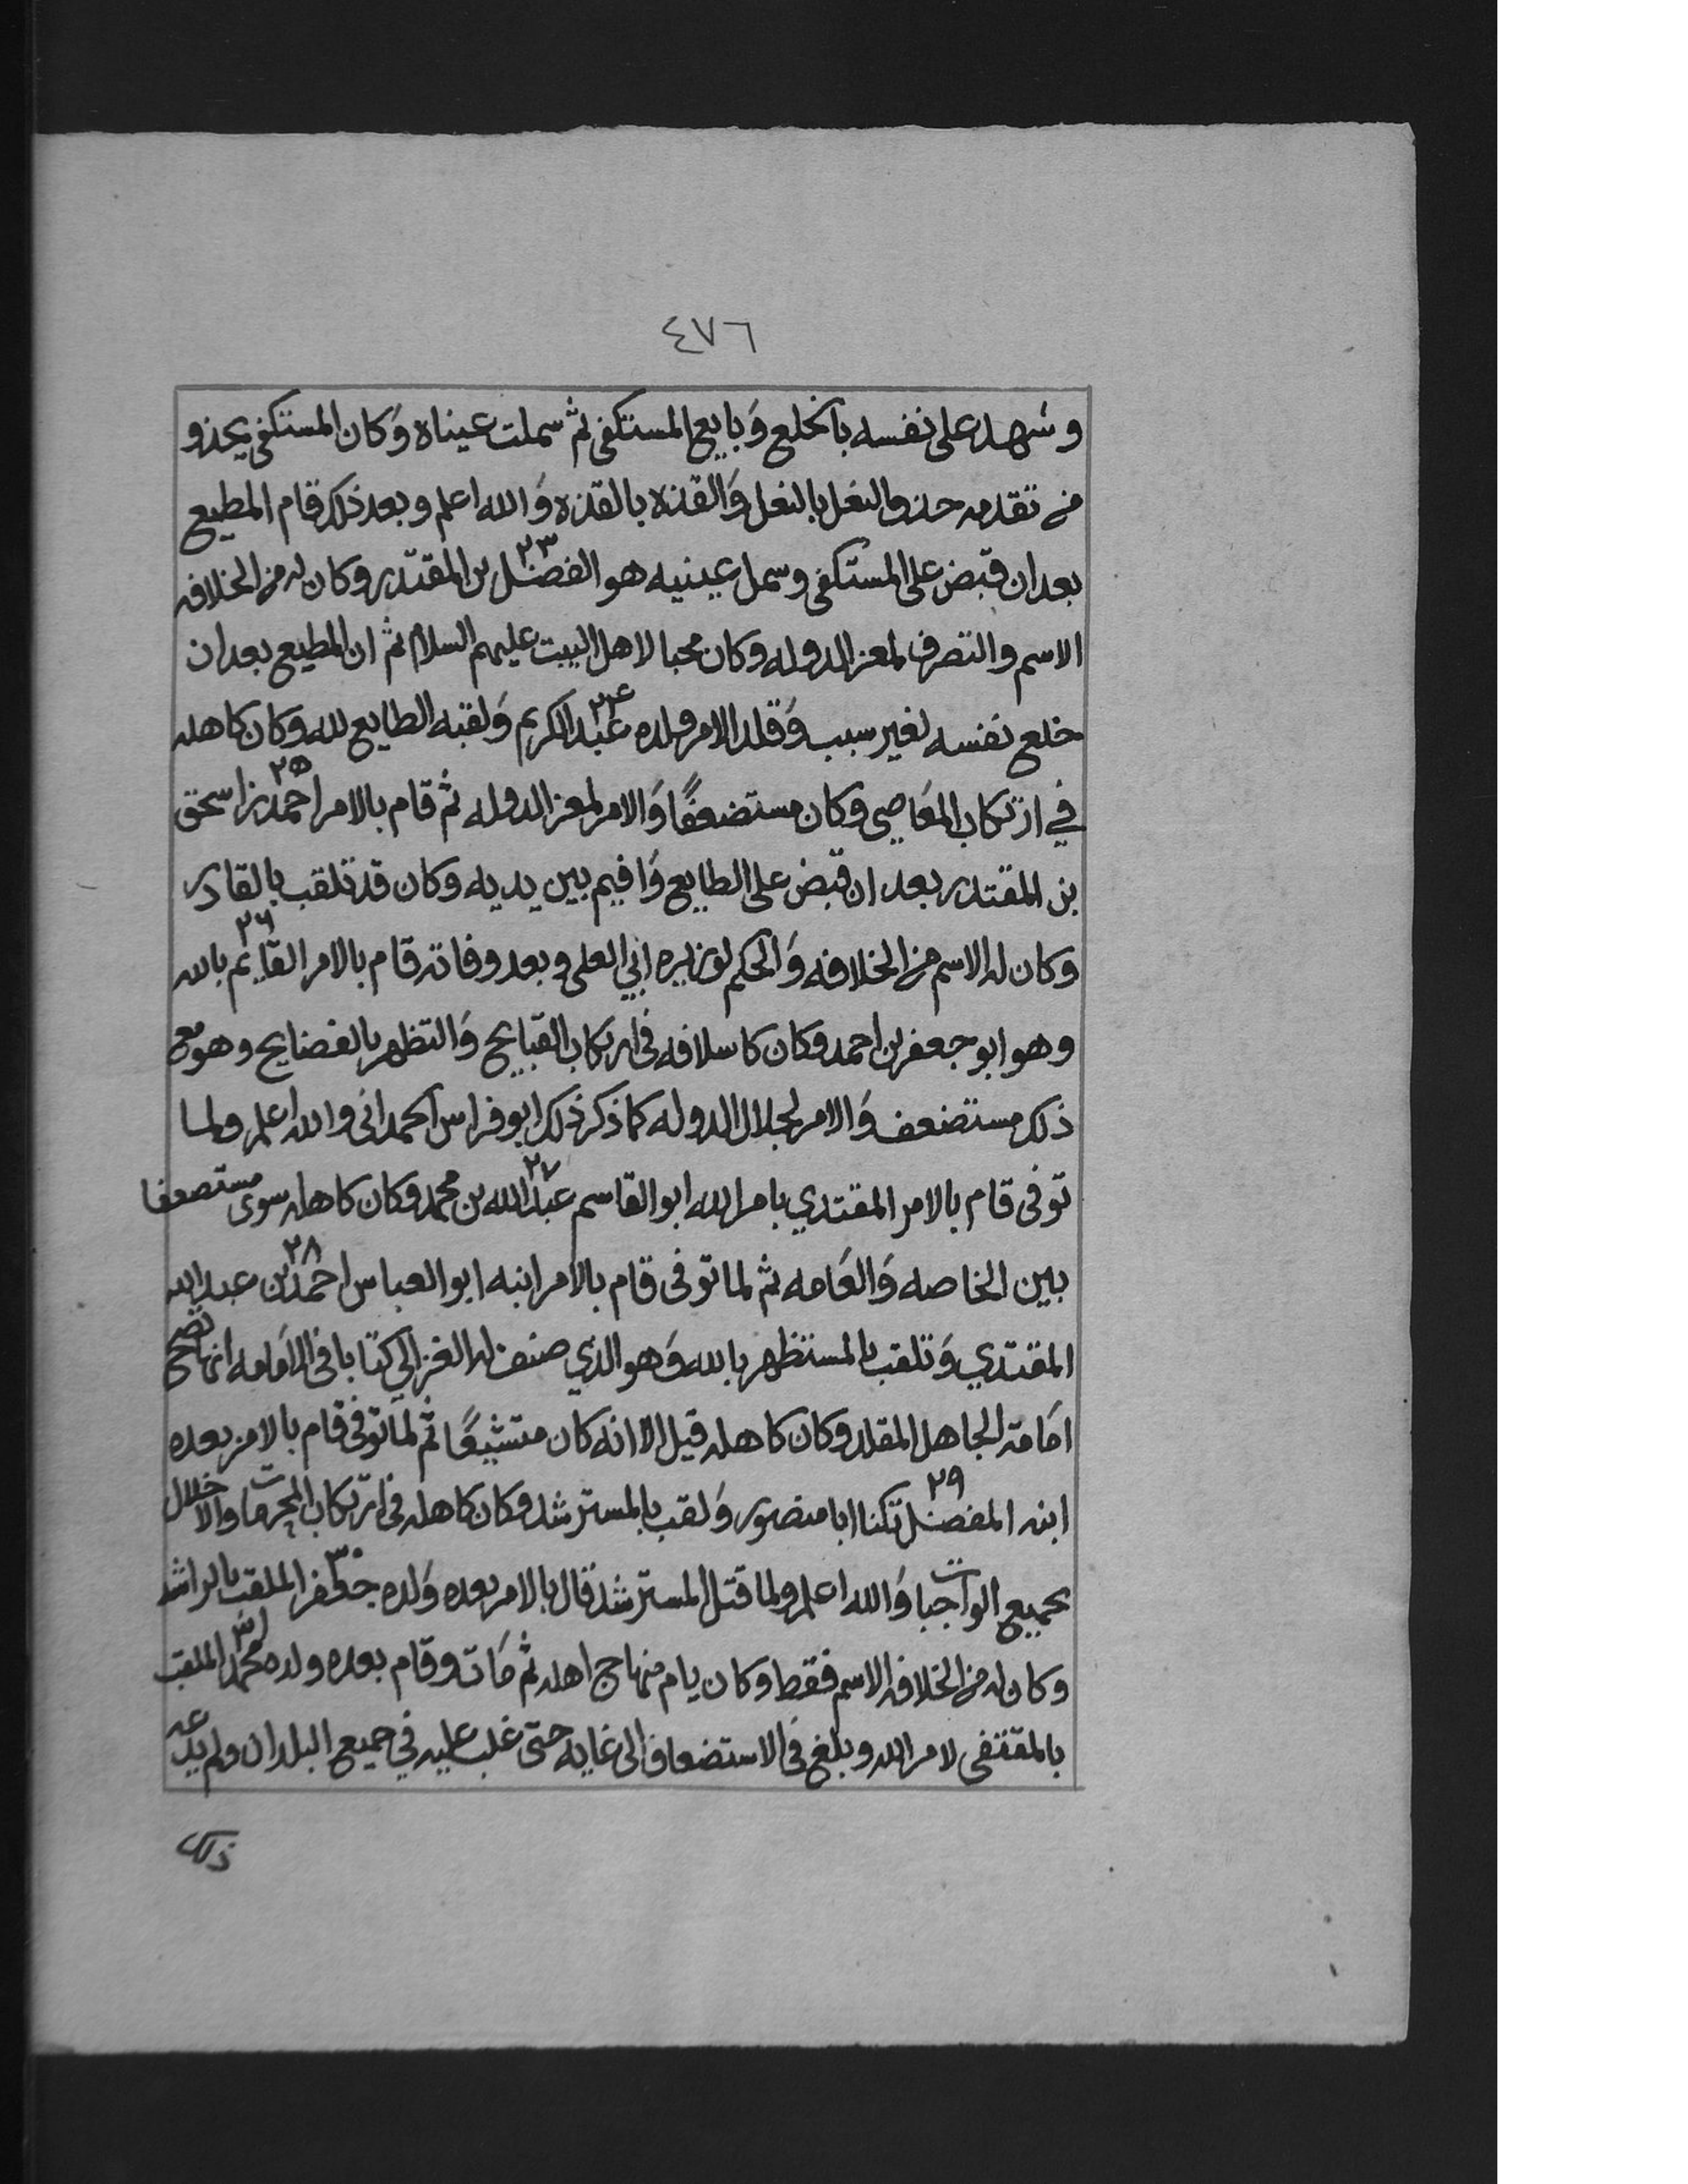 ٤٧٦
وشهد على نفسه بالخلع وَبايع المستكفى ثم سملت عيناه وَكان المستكفى يحذو
من تقدمه حذو النعل بالنعل وَالقذه بالقذه وَالله اعلم وبعد ذلك قام المطيع
بعد ان قبض على المستكفى وسمل عينيه هو الفضل ٢٣ بن المقتدر وكان له من الخلافه
الاسم والتصرف لمعز الدوله وكان محبا لاهل البيت عليهم السلام ثم ان المطيع بعد ان
خلع نفسه لغير سبب وَقلد الامر ولده عبد ٢٤ الكريم وَلقبه الطايع لله وكان كاهله
في ارتكاب المعَاصي وكان مستضعفًا وَالامر لمعز الدوله ثم قام بالامر احمد ٢٥ بن اسحق
بن المقتدر بعد ان قبض على الطايع وَاقيم بين يديه وكان قد تلقب بالقادر
وكان له الاسم من الخلافه وَالحكم لوزيره ابي العلى وبعد وفاته قام بالامر القايم ٢٦ بالله
وهو ابو جعفر بن احمد وكان كاسلافه فى ارتكاب القبايح وَالتظهر بالفضايح وهو مع
ذلك مستضعف وَالامر لجلال الدوله كما ذكر ذلك ابو فراس الحمدانى والله اعلم ولما
توفى قام بالامر المقتدي بامر الله ابو القاسم عبد ٢٧ الله بن محمد وكان كاهله سوى مستضعفا
بين الخاصه وَالعَامه ثم لما توفى قام بالامر ابنه ابو العباس احمد ٢٨ بن عبد الله
المقتدي وَتلقب بالمستظهر بالله وَهو الذي صنف له الغزالي كتابا فى الامَامه انها تصح
امَامة الجاهل المقلد وكان كاهله قيل الا انه كان متشيعًا ثم لما توفى قام بالامر بعده
ابنه المفضل ٢٩ تكنا ابا منصور وَلقب بالمسترشد وكان كاهله فى ارتكاب المحرمات والاخلال
بجميع الواجبات وَالله اعلم ولما قتل المسترشد قال بالامر بعده وَلده جعفر ٣٠ الملقب بالراشد
وكان له من الخلافه الاسم فقط وكان يام منهاج اهله ثم مَات وقام بعده ولده محمد ٣١ الملقب
بالمقتفى لامر الله وبلغ فى الاستضعاف الى غايه حتى غلب عليه في جميع البلدان ولم
ذلك